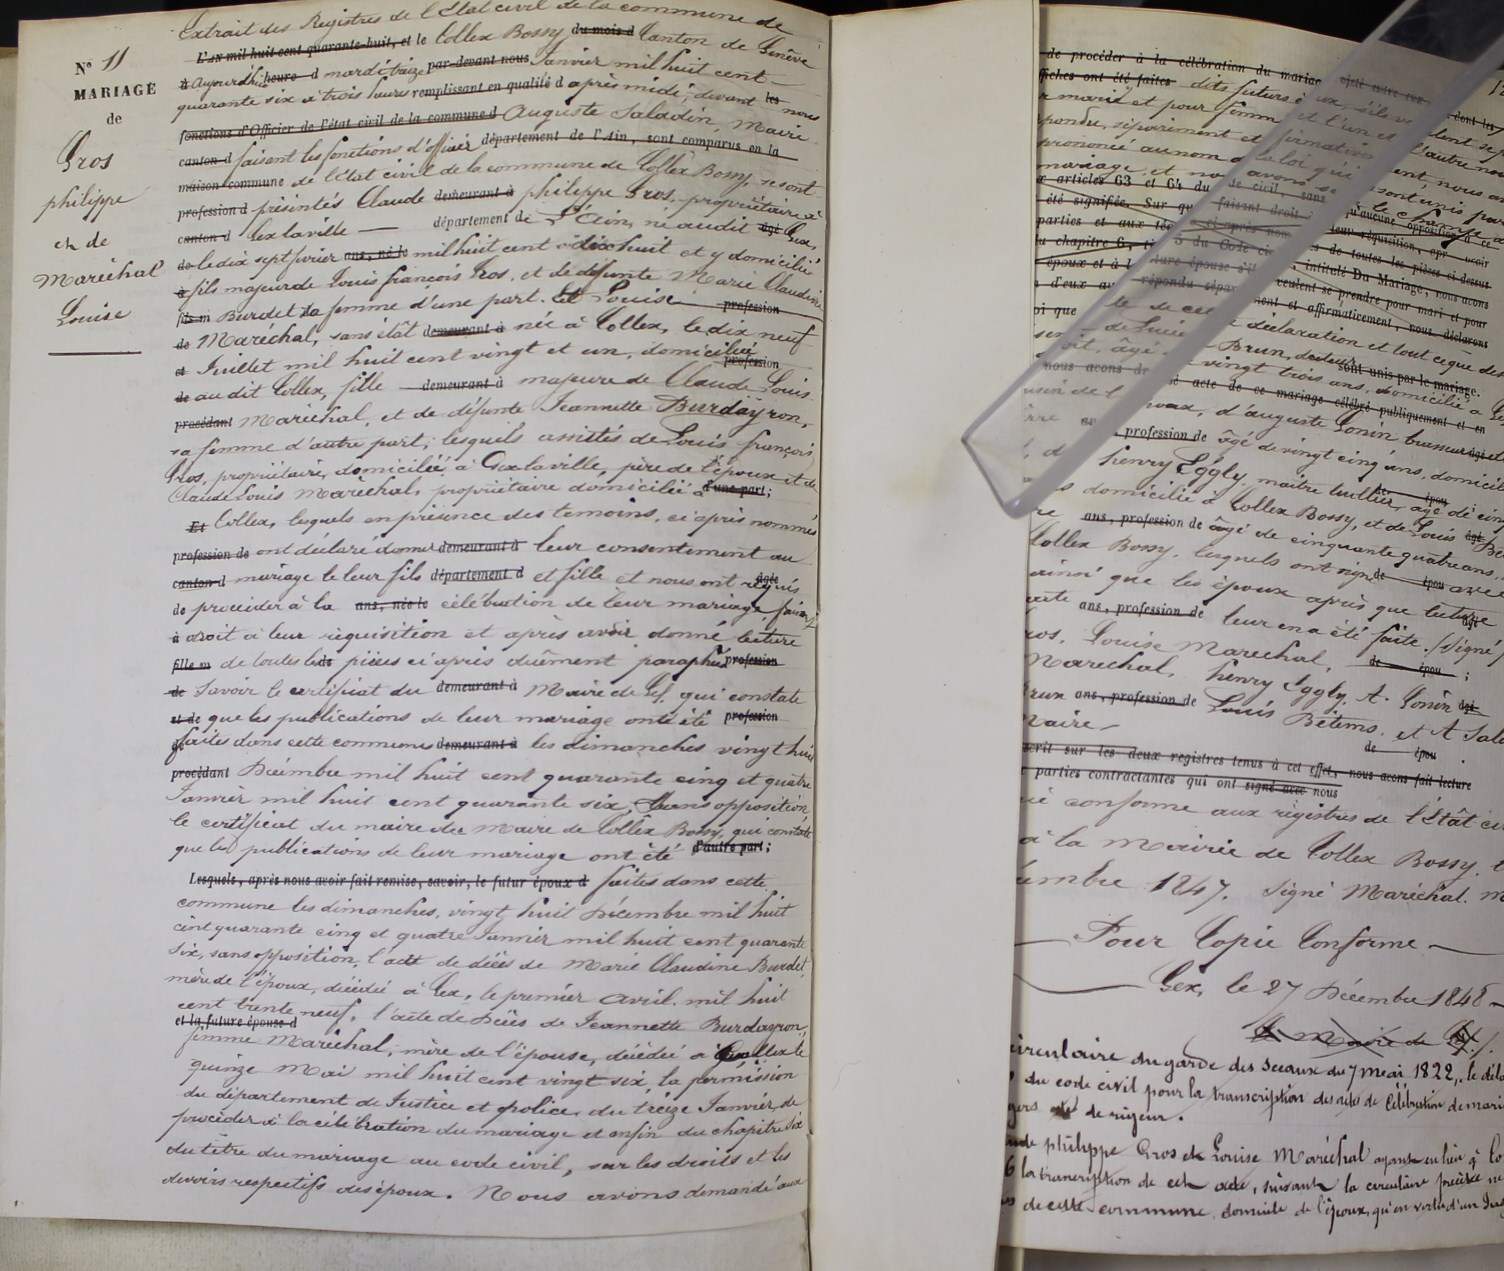 Extrait des Registres de l'Etat civil de la commune de
L'an mil huit cent quarante-huit, et le Collex Bossy, du mois d Canton de Genève
à Aujourd'hui heure d mardi treize par-devant nous Janvier mil huit cent
quarante six à trois heures remplissant en qualité d après midi, devant les nous
fonctions d'Officier de l'état civil de la commune d Auguste Saladin, Maire
canton d faisant les fonctions d'officier département de l'Ain, sont comparus en la
maison commune de l'Etat civil de la commune de Collex Bossy, se sont
profession d présentés Claude demeurant à philippe Gros, propriétaire à
canton d Gex la ville — département de L'Ain, né audit âgé Gex,
de le dix sept fevrier ans, né le mil huit cent dix huit et y domicilié
à fils majeur de Louis françois Gros, et de défunte Marie Claudine
fils m Burdet sa femme d'une part. Et Louise profession
de Maréchal, sans état demeurant à née à Collex, le dix neuf
et Juillet mil huit cent vingt et un, domiciliée profession
de au dit Collex, fille demeurant à majeure de Claude Louis
procédant Maréchal, et de défunte Jeannette Burdayron,
sa femme d'autre part; lesquels assistés de Louis françois
Gros, propriétaire, domicilié à Gex la ville, père de l'époux et de
Claude Louis Maréchal, propriétaire domicilié à d'une part;
Et Collex, lesquels en présence des temoins, ci après nommés
profession de ont déclaré donner demeurant à leur consentement au
canton d mariage le leur fils département d et fille et nous ont requis âgée
de procéder à la ans, née le célébration de leur mariage, faisant
à droit à leur réquisition et après avoir donné lecture
fille m de toutes les pièces ci après dûement paraphées profession
de Savoir le certificat du demeurant à Maire de Gex, qui constate
et de que les publications de leur mariage ont été profession
faites dans cette commune demeurant à les dimanches vingt huit
procédant Décembre mil huit cent quarante cinq et quatre
Janvier mil huit cent quarante six, sans opposition
le certificat du maire du Maire de Collex Bossy, qui constate
que les publications de leur mariage ont été d'autre part;
Lesquels, après nous avoir fait remise, savoir, le futur époux d faites dans cette
commune les dimanches, vingt huit Décembre mil huit
cent quarante cinq et quatre Janvier mil huit cent quarante
six, sans opposition, l'acte de décès de Marie Claudine Burdet,
mère de l'époux, décédée à Gex, le premier avril mil huit
cent trente neuf, l'acte de Décès de Jeannette Burdayron
et la future épouse d
femme Maréchal, mère de l'épouse, décédée à Collex le
quinze Mai mil huit cent vingt six, la permission
du département de Justice et police, du treize Janvier, de
procéder à la célébration du mariage et enfin du chapitre six
du titre du mariage au code civil, sur les droits et les
devoirs respectifs des époux. Nous avons demandé aux
N° 11
MARIAGE
de
Gros
philippe
et de
Maréchal
Louise
de procéder à la célébration du mariage
affiches ont été faites dits futurs
mari et pour femme et l'un et l'autre
séparément et
prononcé au nom de la loi qui
mariage et
articles 63 et 64 du code civil
été signifiée. Sur qu faisant droit
parties et aux
chapitre 6, du Code civil intitulé Du Mariage, nous avons
d'eux répondu veulent se prendre pour mari et pour
et affirmativement, nous déclarons
déclaration et tout ce que des
âgé Brun, docteur sont unis par le mariage.
nous avons vingt trois ans, domicilié à
acte de ce mariage célébré publiquement et en
d'auguste Lonin brasseur
profession de âgé de vingt cinq ans, domicilié
henry Eggly, maître tuillier, âgé de
domicilié à Collex Bossy, et de Louis
ans, profession de âgé de cinquante quatre ans,
Collex Bossy, lesquels ont signé de épou avec
ainsi que les époux après que lecture
ans, profession de leur en a été faite. (Signé
Gros, Louise Marechal, de épou ;
Marechal, henry Eggly, A. Lonin
Brun ans, profession de Louis Betems, et A Sala
maire
de épou
inscrit sur les deux registres tenus à cet effet, nous avons fait lecture
parties contractantes qui ont signé avec nous
conforme aux régistres de l'Etât ci
à la Mairie de Collex Bossy,
1847. Signé Maréchal.
Pour Copie Conforme
Gex, le 27 Décembre 1848
Le Maire de Gex
circulaire du garde des Sceaux du 7 mai 1822,
du code civil pour la transcription des actes de Célébration de maria
de rigueur.
philippe Gros et Louise Maréchal ayant eu lieu à
la transcription de cet acte, suivant la circulaire précitée
de cette commune, domicile de l'époux, qu'en vertu d'un